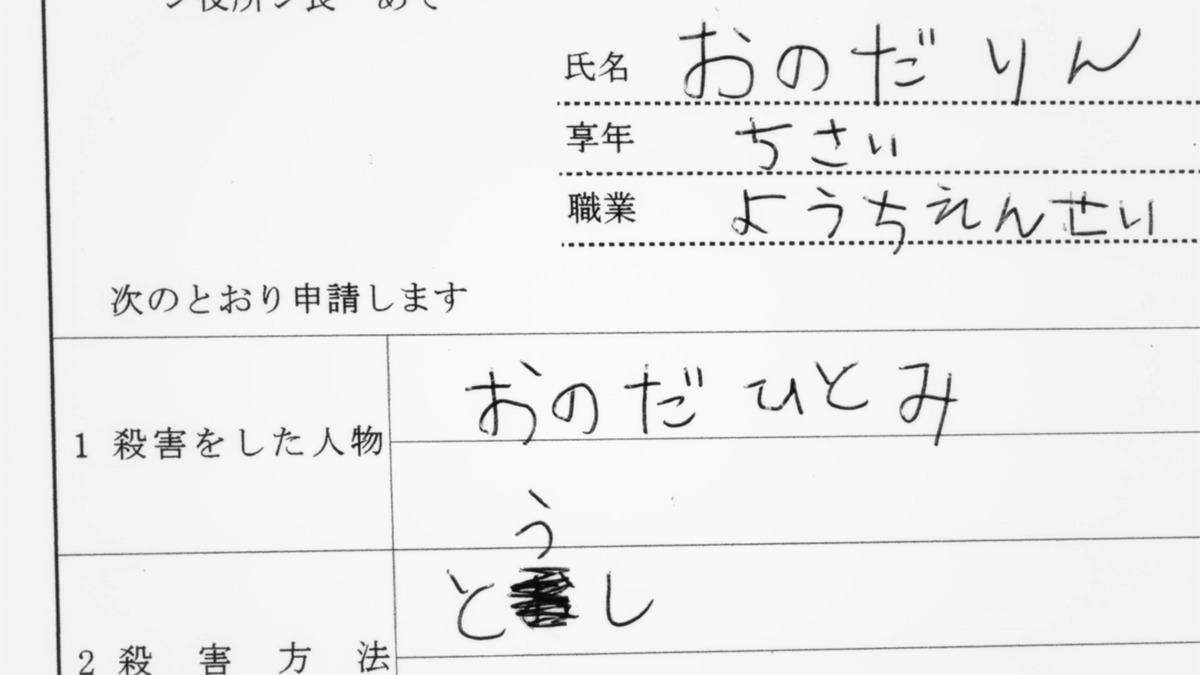 氏名 おのだ りん
享年 5さい
職業 ようちえんせい
次のとおり申請します
1 殺害をした人物 おのだ ひとみ
2 殺害方法 とうし